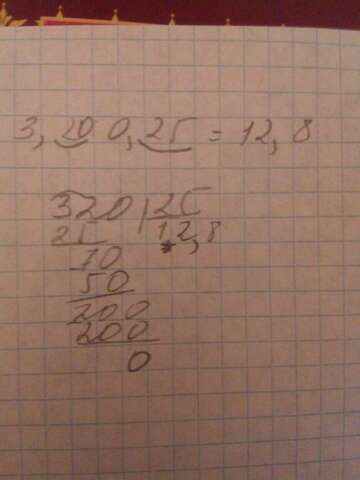 3,20 0,25 = 12,8
320 25
25 12,8
70
50
200
200
0